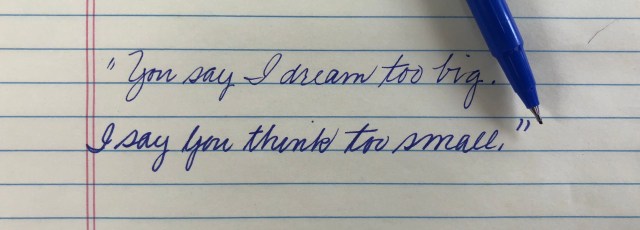 "You say I dream too big.
I say you think too small."